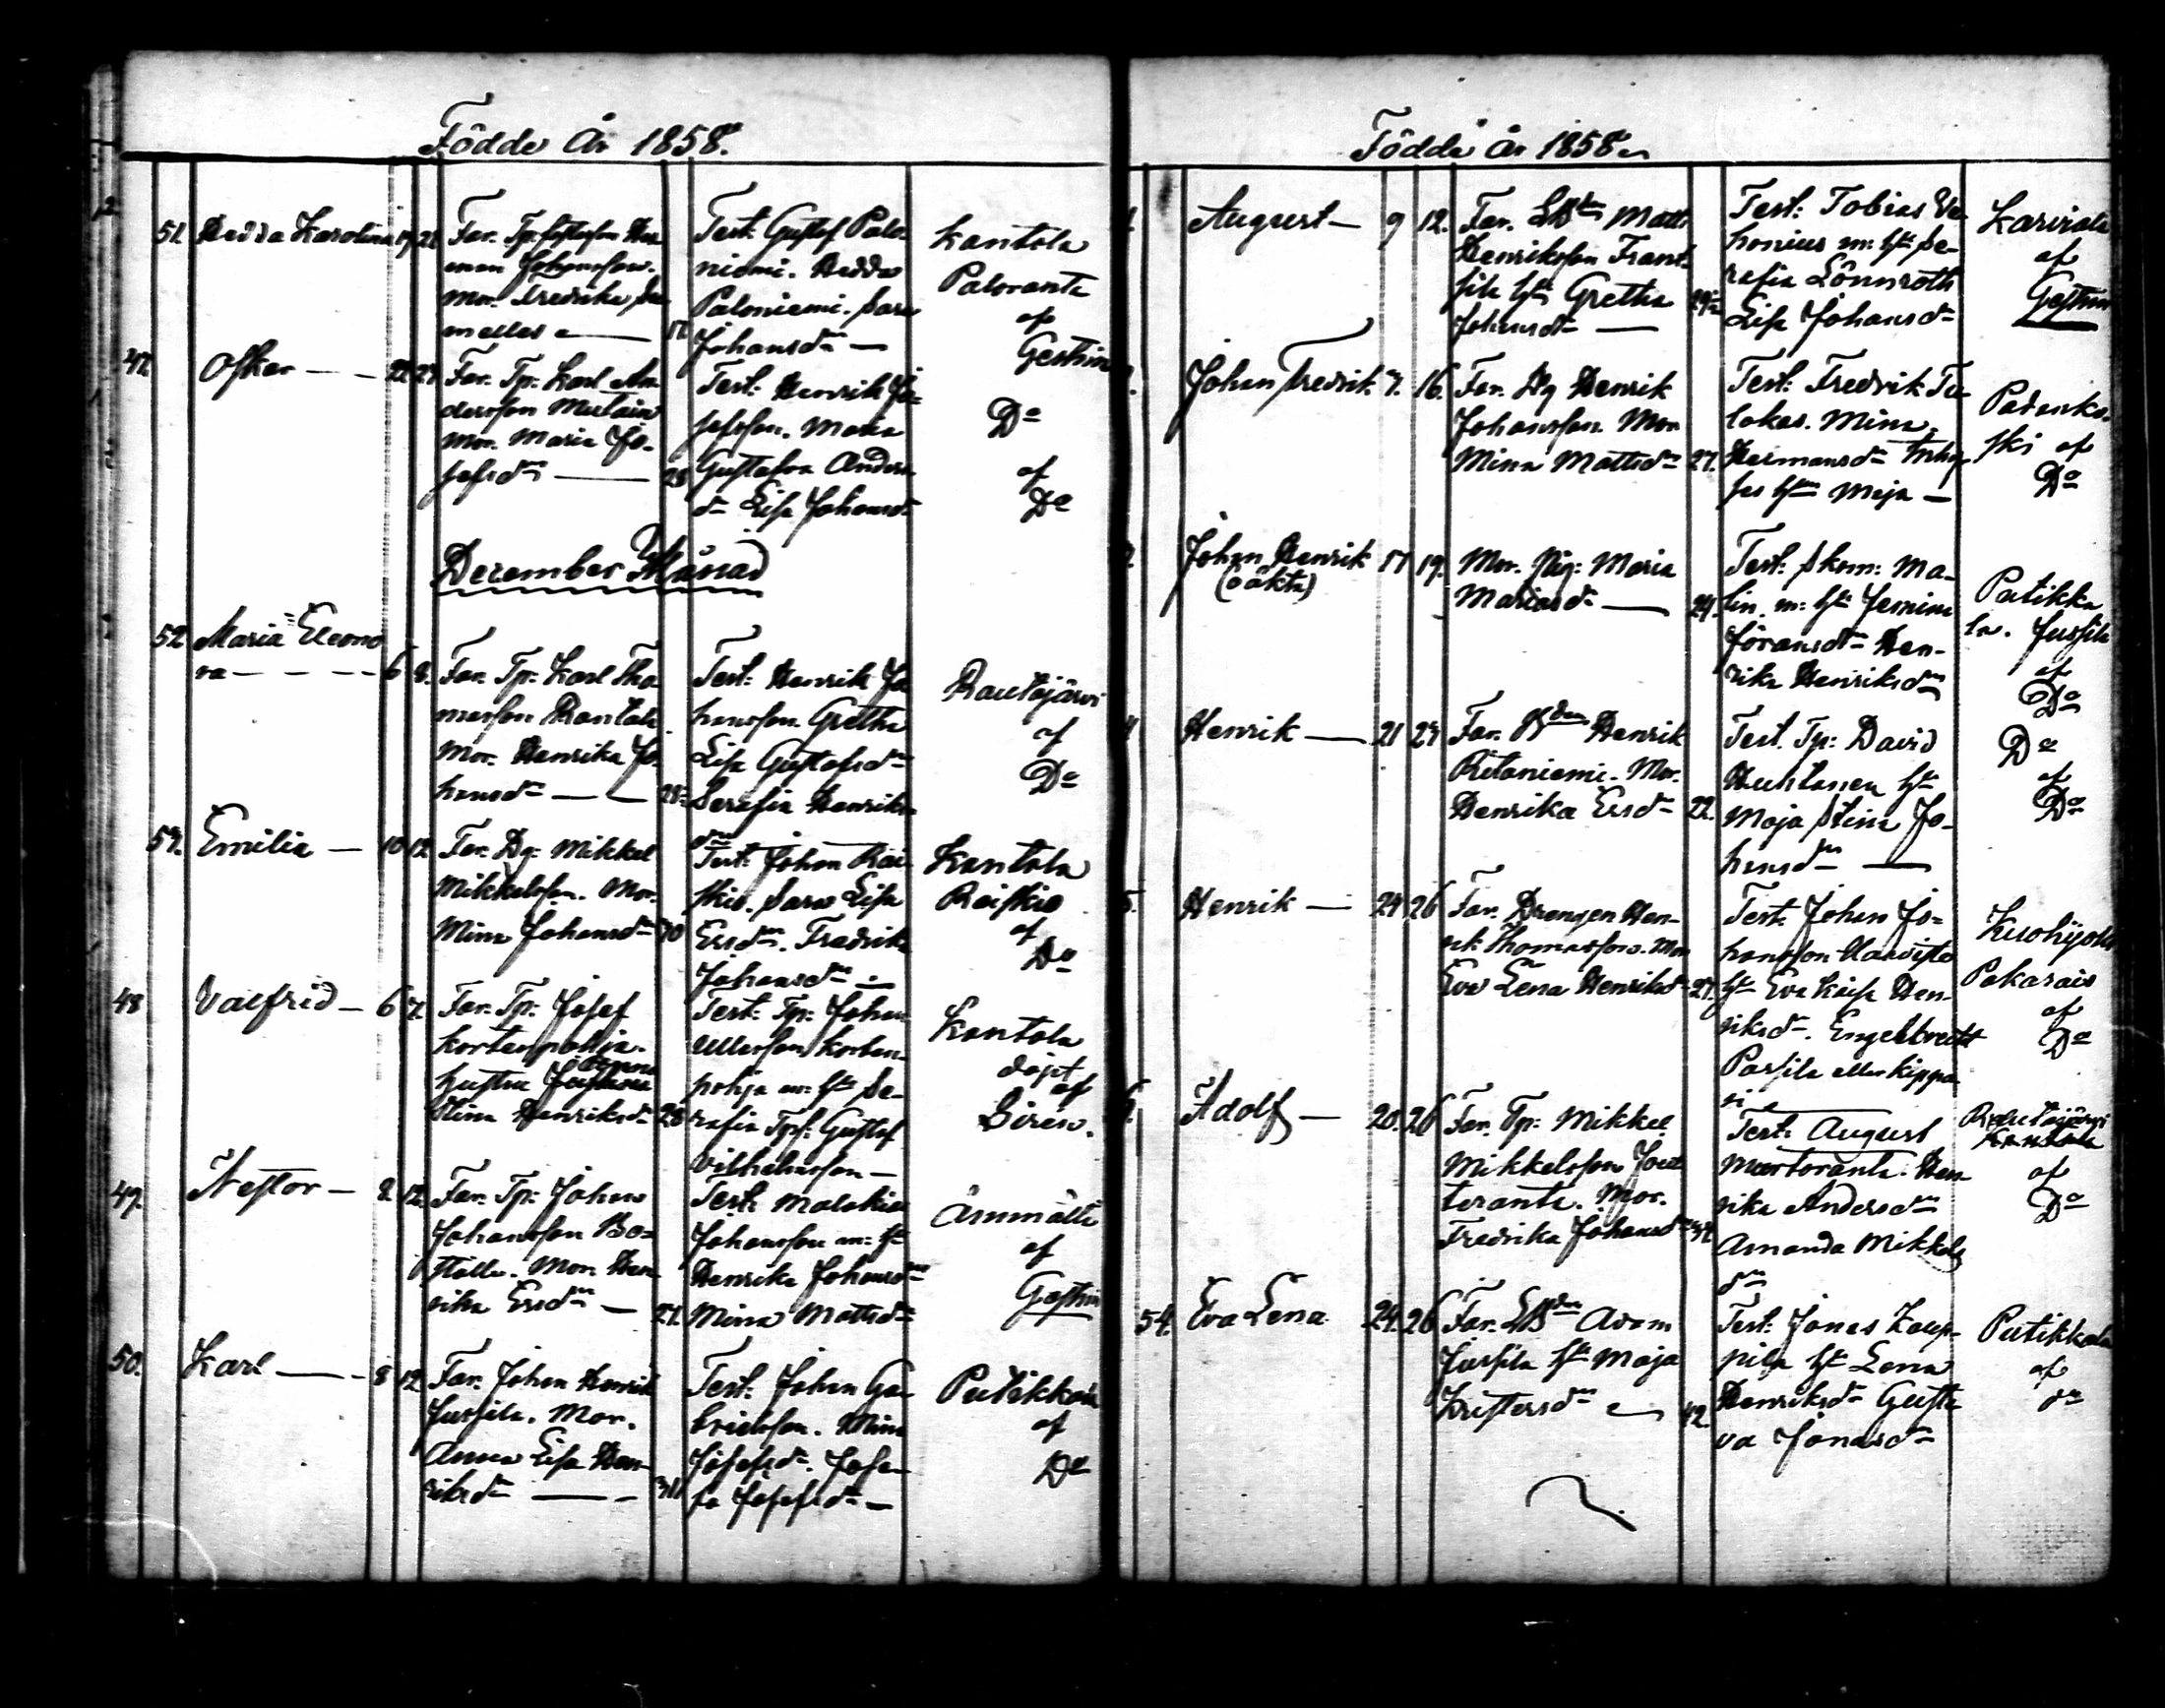 Födde År 1858.
51. Hedda Karolina 19 21
Far. Tp.
man Johansson.
Mor. Fredrika
17
Test: Gustaf Palo-
niemi. Hedda
Paloniemi. Sara
Johansdr
Kantola
Paloranta
af
Geststrin
47. Oskar 22 27
Far. Tp. Karl An-
dersson
Mor. Maria Jo-
sefsdr 28
Test: Henrik Jo-
sefsson. Maria
Gustafva Anders
dr Lisa Johansdr
Do
af
Do
December Månad
52 Maria Eleono
ra 6 8.
Far. Tp. Karl Tho-
masson Rantala
Mor. Henrika Jo-
hansdr 28
Test: Henrik Jo
hansson Gretha
Lisa Gustafsdr
Serafia Henriks-
dr
Rautajärvi
af
Do
53. Emilia 10 12
Far. Dg. Mikkel
Mikkelsson. Mor.
Mina Johansdr 30
Test: Johan Rai
skio. Sara Lisa
Ersdr. Fredrika
Johansdr
Kantola
Raiskio
af
Do
48 Valfrid 6 7.
Far. Tp. Josef
Kortenpohja.
hustru
Stina Henriksdr 28
Test: Tp: Johan
Korten-
pohja m: hu Se-
rafia Gustaf
Vilhelmsson
Kantola
döpt
af
Siren.
49. Nestor 8. 12.
Far. Tp: Johan
Johansson Bo-
ställe. Mor. Hen
rika Ersdr 27.
Test: Malakias
Johansson m: h
Henrika Johansdr
Mina Mattsdr
Ämmätti
af
50. Karl 8 12
Far. Johan Henrik
Jussila. Mor.
Anna Lisa Hen-
riksdr 30
Test: Johan Ga-
brielsson. Mina
Josefsdr. Jose-
fa Josefsdr
Putikkola
af
Do
Födde år 1858
August 9 12.
Far. Matts
Henriksson Frant-
sila hu Gretha
Johansdr 29
Test: Tobias
m: hu Se-
rafia Lönnroth
Lisa Johansdr
Karviala
af
Johan Fredrik 7. 16.
Far. Dg Henrik
Johansson. Mor
Mina Mattsdr 27.
Test: Fredrik Tu-
lokas. Mina
Hermansdr
Maja
Padanko-
ski af
Do
Johan Henrik 17 19.
(oäkta)
Mor. Pig: Maria
Mariasdr 24.
Test: Skom: Ma-
lin m: hu Jemina
Göransdr Hen-
rika Henriksdr
Putikko
la. Jussila
af
Do
Henrik 21 27
Far. Henrik
Ritaniemi. Mor.
Henrika Ersdr 22.
Test. Tp: David
Huhtanen hu
Maja Stina Jo-
hansdr
Do
af
Do
Henrik 24 26
Far. Drengen Hen-
rik Thomasson. Mor
Eva Lena Henriksdr 27.
Test: Johan Jo-
hansson
hu Eva Kaisa Hen-
riksdr. Engelbrecht
Parsila eller
Kuohijoki
Pakarais
af
Do
Adolf 20. 26
Far. Tp: Mikkel
Mikkelsson
Mor.
Fredrika Johansdr
Test: August
Martoranta. Hen-
rika Andersdr
Amanda Mikkels
dr
Rautajärvi
af
Do
54. Eva Lena 24. 26
Far. Adam
Jussila hu Maja
Kristersdr 42.
Test: Jonas Kaup-
pila hu Lena
Henriksdr Gusta
va Jonasdr
Putikkola
af
do